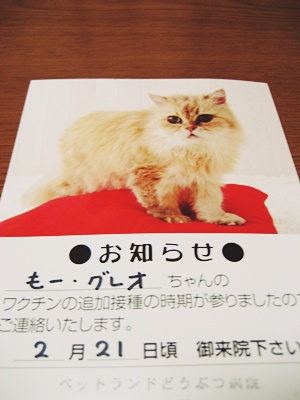 ●お知らせ●
もー・グレオ ちゃんの
ワクチンの追加接種の時期が参りましたので
ご連絡いたします。
2月21日頃 御来院下さい
ペットランドどうぶつ病院